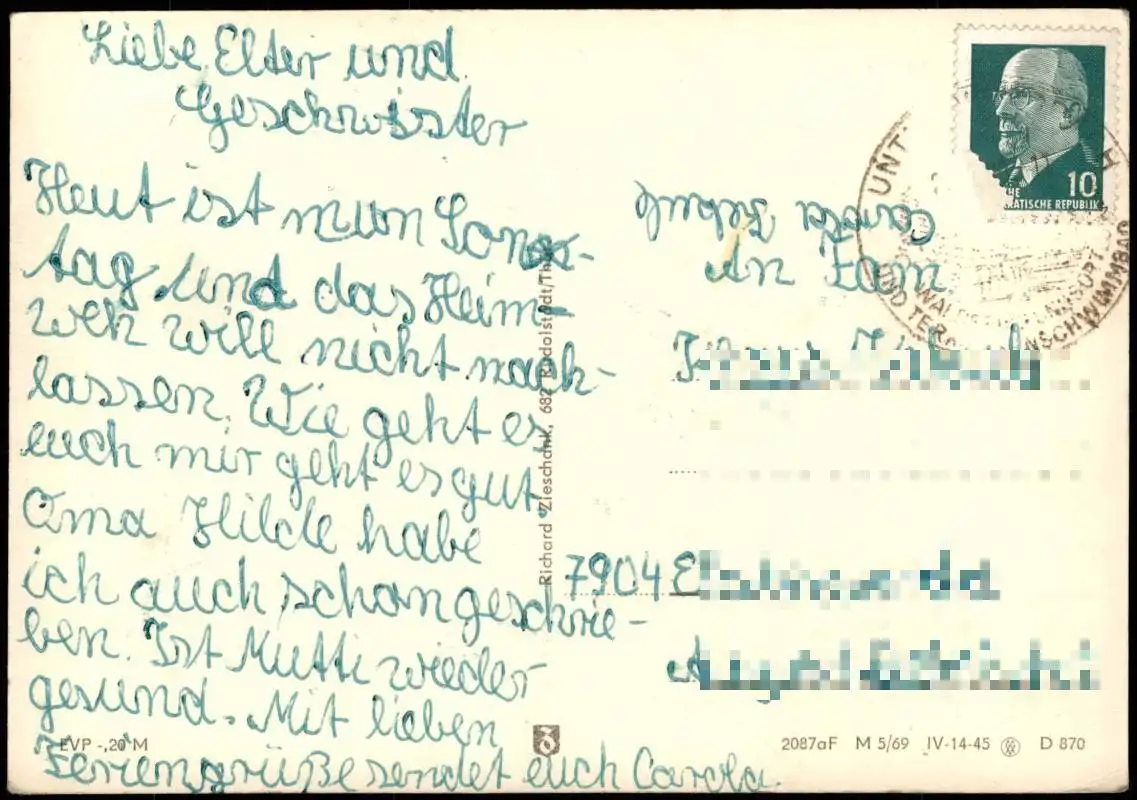 Liebe Elter und
Geschwister
Heut ist nun Sonn-
tag und das Heim-
weh will nicht nach-
lassen. Wie geht es
euch mir geht es gut
Oma Hilde habe
ich auch schon geschrie-
ben. Ist Mutti wieder
gesund. Mit lieben
Feriengrüße sendet euch Carola.
Carola
An Fam
7904
10
ATISCHE REPUBLIK
UNT
Richard Zieschank, 682 Rudolstadt/Thür.
EVP -,20 M
2087aF M 5/69 IV-14-45 D 870